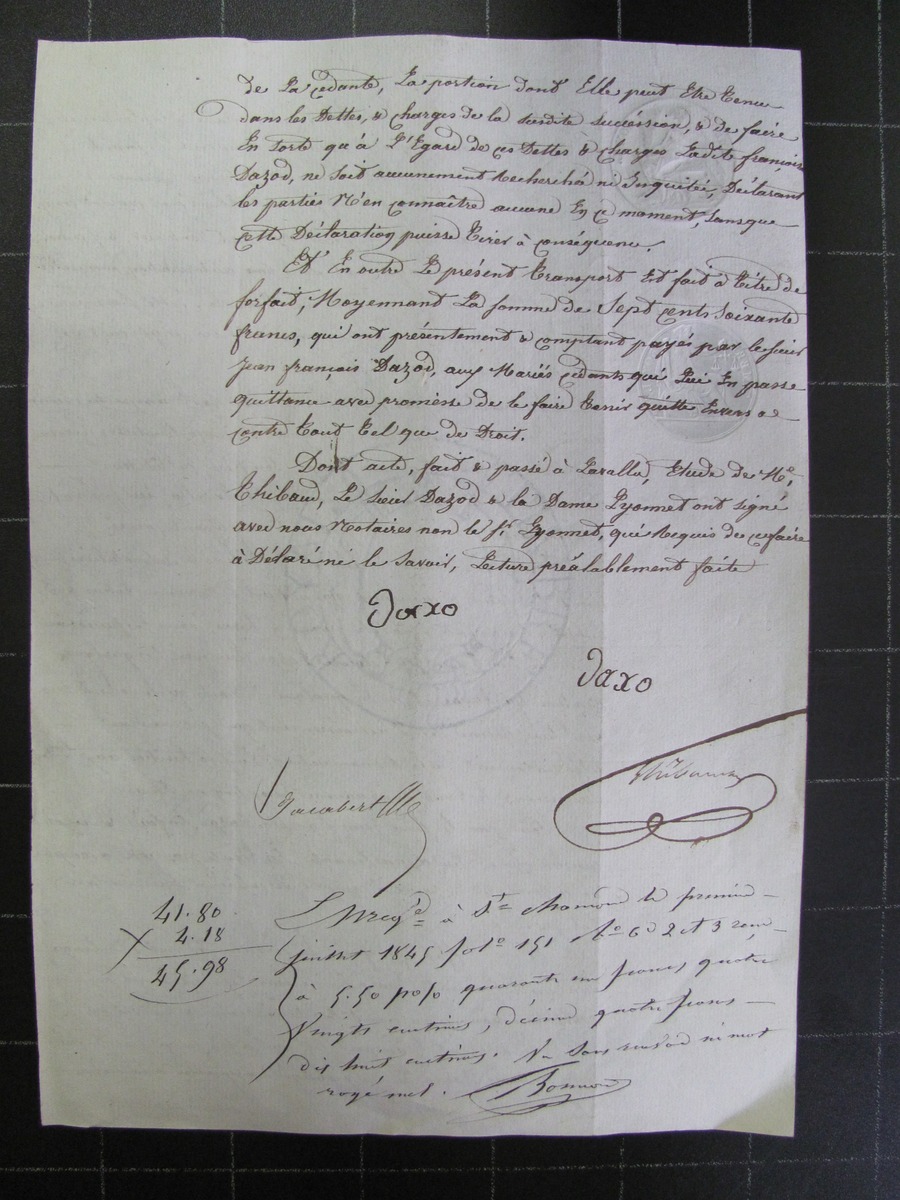 de La Cedante, La portion dont Elle peut Etre Tenue
dans les Dettes, & charges de la susdite succéssion, & de faire
En sorte qu'à L'Egard de ces Dettes & charges Ladite françoise
Dazod, ne soit aucunement Recherchée ni Inquiétée, Déclarant
les parties N'en connaître aucune En ce moment, sans que
cette Déclaration puisse Tirer à conséquence.
Et En outre Le présent Transport Est fait à Titre de
forfait, Moyennant La somme de Sept cents soixante
francs, qui ont présentement & comptant payés par le sieur
Jean françois Dazod, aux Mariés cedants qui Lui En passe
quittance avec promèsse de le faire Tenir quitte Envers &
contre Tout Tel que de Droit.
Dont acte, fait & passé à Lavalla, Etude de Me.
Thibaud, Le sieur Dazod & la Dame Lyonnet ont signé
avec nous Notaires non le Sr. Lyonnet, qui Requis de ce faire
à Déclaré ne le Savoir, Lecture préalablement faite
Daxo
daxo
Thibaud
Jacabert
41.80
4.18
45.98
Enregé à St Chamond le premier
juillet 1845 folo 151 Ro Cs 2 et 3 reçu
à 5.50 p o/o quarante un francs quatre
Vingts centimes, décime quatre francs
dix huit centimes. Un Sans renvoi ni mot
rayé nul.